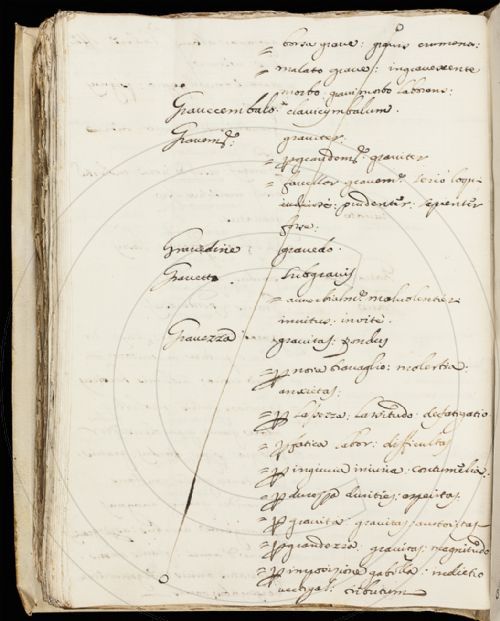 = borsa grave: gravis crumena:
= malato grave: ingravescente
morbo: gravi morbo laborans:
Gravecembalo. clavicymbalum.
Gravem.te graviter.
= p grandem.te graviter
= favellar gravem.te serio loqui
prudenter: sapienter
Gravedine gravedo.
Gravetto. subgravis
= avverbialm.te malvolentieri
invitus: invite.
Gravezza gravitas: pondus
= p noia travaglio: molestia:
anxietas:
= p lassezza: lassitudo: defatigatio
= p fatica labor: difficultas
= p ingiuria iniuria: contumelia:
= p durezza durities: asperitas.
= p gravità gravitas: auctoritas
= p grandezza gravitas: magnitudo
= p imposizione gabella: indictio
vectigal: tributum